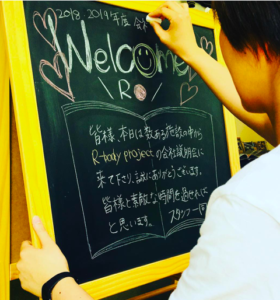 2018. 2019年度 会
Welcome
R
皆様、本日は数ある施設の中から
R-body projectの会社説明会に
来て下さり、誠にありがとうございます。
皆様と素敵な時間を過せれば
と思います。
スタッフ一同